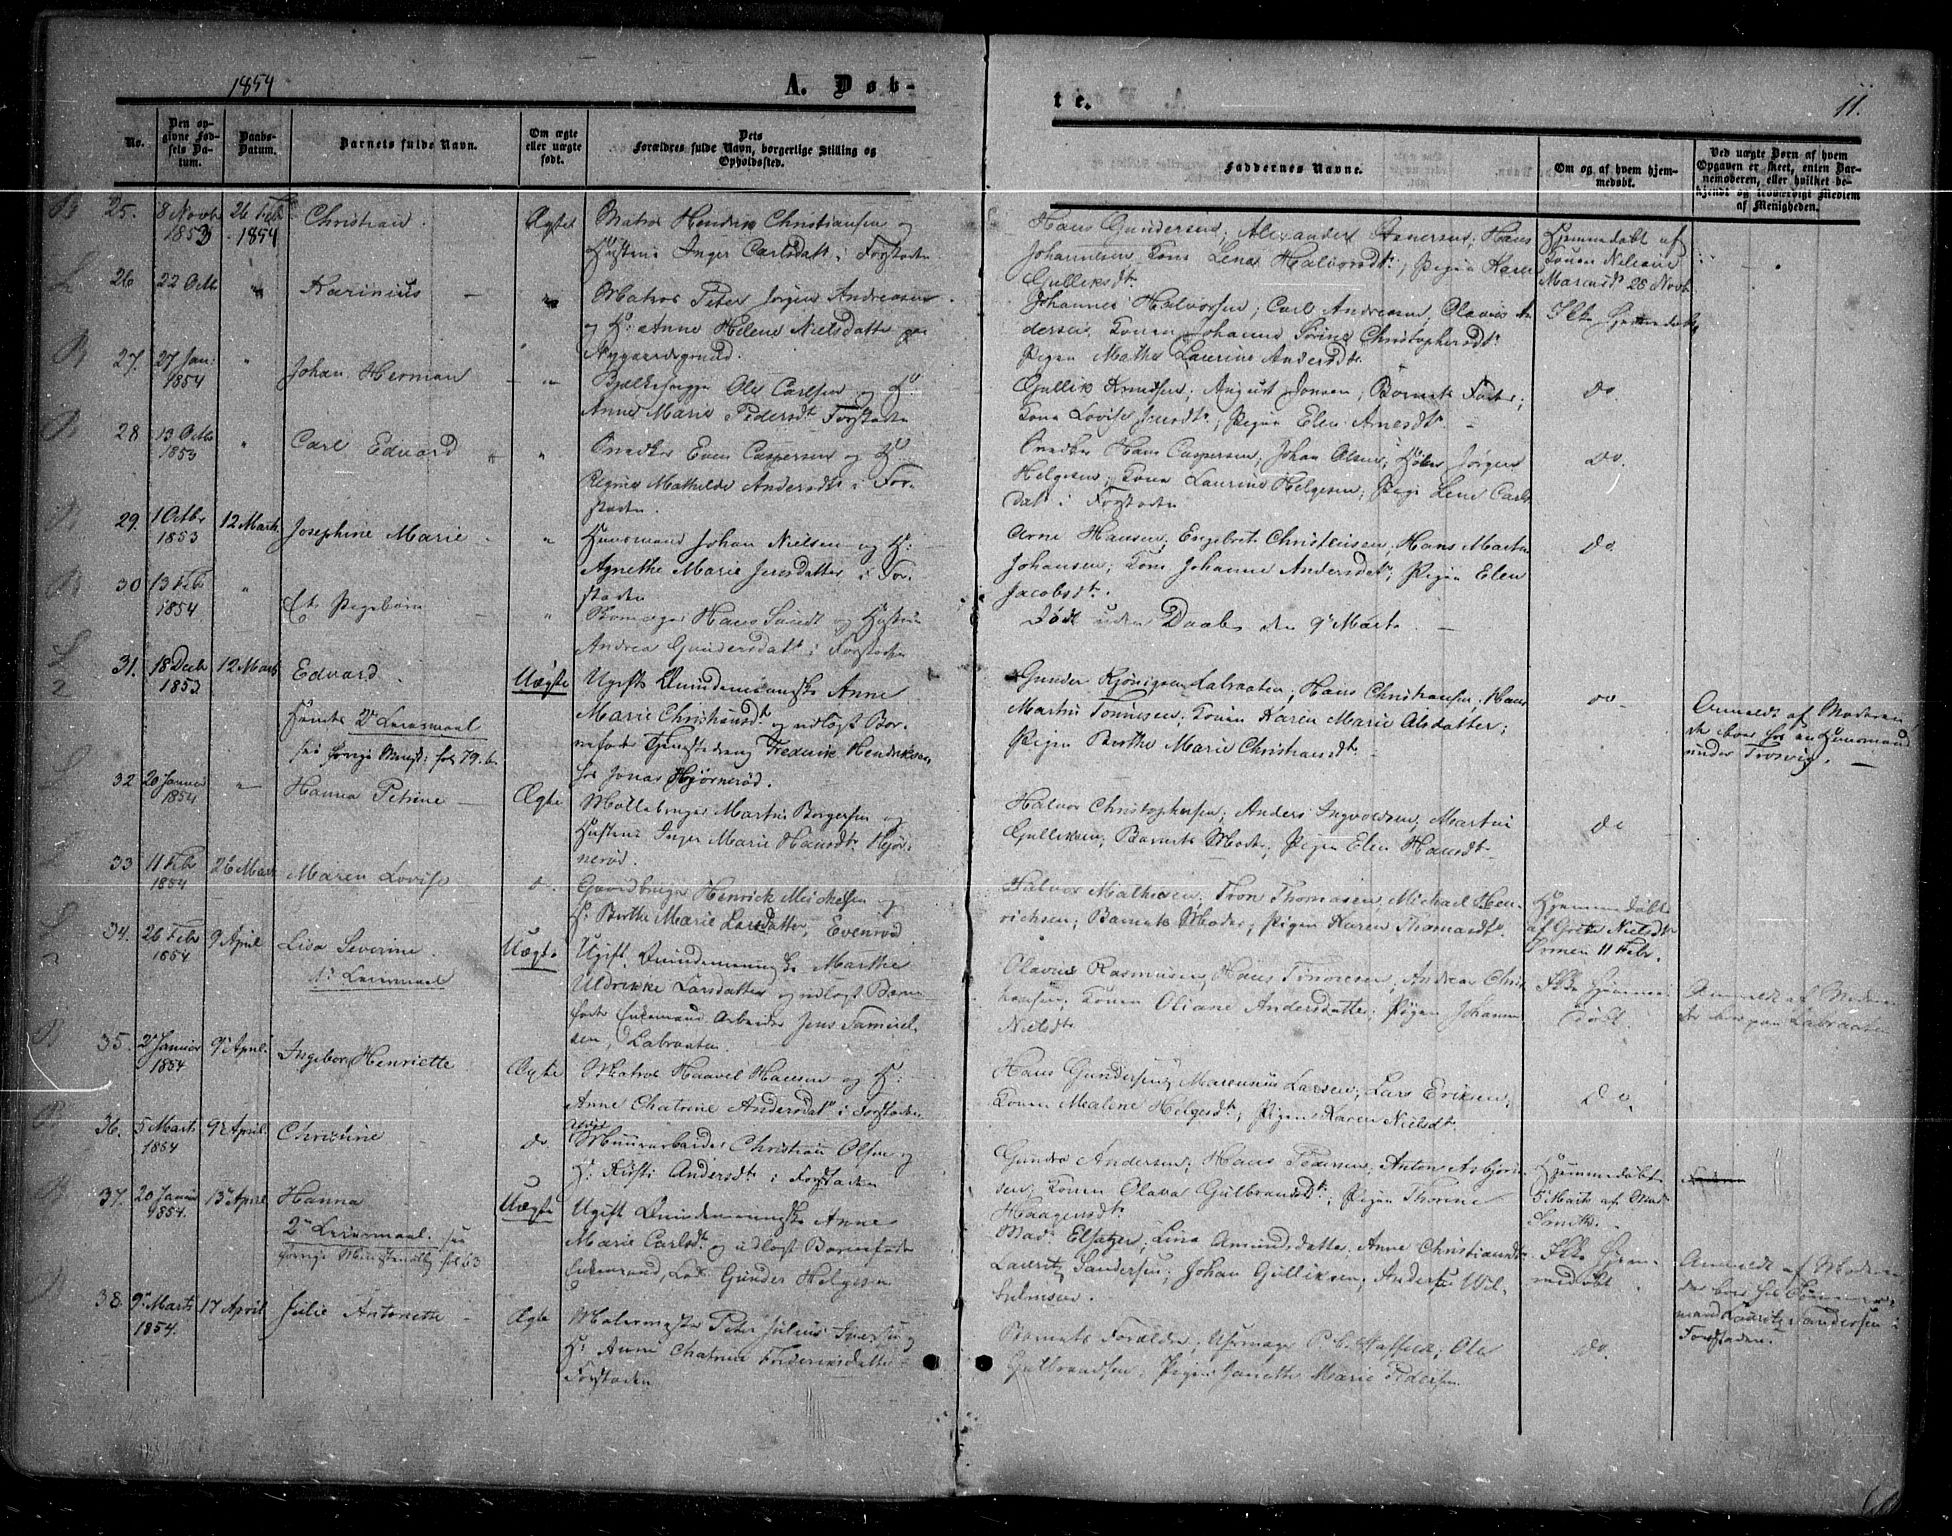 1854
A. Døb-
te.
11.
No.
Den op-
givne Fød-
sels Da-
tum.
Daabs-
Datum.
Barnets fulde Navn.
Om ægte
eller uægte
født.
Dets
Forældres fulde Navn, borgerlige Stilling og
Opholdssted.
Faddernes Navne.
Om og af hvem hjem-
medøbt.
Ved uægte Børn af hvem
Opgaven er skeet, enten Bar-
nemoderen, eller hvilket be-
kjendt og troværdigt Medlem
af Menigheden.
25. 8 Novb 1853 26 Feb 1854 Christian Ægte
Matros Hendrik Christiansen og
Hustru Inger Carlsdatt i Forstaden
Hans Gundersen, Alexander Hans
Johannesen, Kone Lena Halvorsdtr, Pigen Karen
Gulliksdtr
Hjemmedøbt af
Konen Nileane
28 Novb
26 22 Octb " Karinius "
Matros Peter Jørgen Andreasen
og H: Anne Helene Nielsdatter paa
Nygaardsgrund.
Johannes Halvorsen, Carl Andreasen, Olavus An
dersen. Konen Johanne Sørine Christophersdtr
Pigen Mathe Laurine Andersdtr
Ikke hjemmedøbt
27. 27 Jan: 1854 " Johan Herman "
Ole Carlsen og H
Anne Marie Pedersdt Forstaden
Gullik Knudsen, August Jonsen, Barnets Fader;
Kone Lovise Jensdt, Pigen Elen Arnesdtr
Do.
28 13 Octb 1853 " Carl Edvard "
Snedker Even Caspersen og H
Regine Mathilde Andersdt i For-
staden.
Snedker Hans Caspersen, Johan Olsen, Jørgen
Helgesen; Kone Laurine Helgesen, Pige Lene Carls
dat i Forstaden
Do.
29. 1 Octbr 1853 12 Marts Josephine Marie "
Huusmand Johan Nielsen og H:
Agnethe Marie Jensdatter i For-
staden
Arne Hansen, Engebret Christensen, Hans Martin
Johansen; Kone Johanne Andersdatr, Pigen Elen
Jacobsdtr.
Do.
30 13 Feb 1854 " Et Pigebarn "
Hans Lundt og Hustru
Andrea Gundersdatr i Forstaden
Død uden Daab den 9de Marts
31. 18 Decb 1853 12 Marts Edvard. Uægte
Ugift Qvindemenneske Anne
Marie Christiansdtr og udlagt Bar-
nefader Frederik Hendriksen
hos Jonas Hjørnerød.
Hendes 2det Leiermaal
see forrige fol 79.b.
Gunder Labraaten, Hans Christiansen, Hans
Martin Tønnesen; Konen Karen Marie Olsdatter;
Pigen Berthe Marie Christiansdtr
Do
Anmeldt af Moderen
under Trosvig.
32 20 Januar 1854 " Hanna Petrine Ægte
Martin Borgersen og
Hustru Inger Marie Hansdtr Hjør-
nerød.
Halvor Christophersen, Anders Ingvoldsen, Martin
Gulliksen; Barnets Moder; Pigen Elen Hansdtr
do
33 11 Feb 1854 26 Mar Maren Lovise d.
Gaardbruger Henrick Michelsen og
H: Berthe Marie Larsdatter, Evenrød
Halvor Mathiesen, Tron Thomasen, Michael Hen-
richsen; Barnets Moder, Pigen Karen Thomasdtr.
Hjemmedøbt
af Grete Nielsdtr
11 Febr.
34. 26 Febr 1854 9 April Lisa Severine. Uægte
1ste Leiermaal
Ugift Qvindemenneske Marthe
Uldrikke Larsdatter og udlagt Barne-
fader Enkemand Arbeider Jens Samuel-
sen, Labraaten.
Olavus Rasmussen, Hans Tønnesen, Andreas Chris-
tiansen, Konen Oliane Andersdatter, Pigen Johanne
Nielsdtr
Ikke hjemme-
døbt.
Anmeldt af Moderen
der bor paa Labraaten
35. 2 Januar 1854 9de April. Ingeborg Henriette Ægte
Matros Haavel Hansen og H:
Anne Chatrine Andersdatr i Forstaden
Hans Gundersen, Marcunius Larsen, Lars Eriksen;
Konen Malene Helgesdtr, Pigen Karen Nielsdtr.
Do.
36. 5 Marts 1854 9de April. Christine do.
Muurarbeider Christian Olsen og
H: Kirsti Andersdtr i Forstaden
Andersen, Hans Pedersen, Anton Asbjørn-
sen; Konen Olava Gulbrandsdtr, Pigen Thorine
Haagensdtr
Hjemmedøbt
5 Marts af Mad
Smith.
37. 20 Januar 1854. 13de April Hanna Uægte
2det Leiermaal. see
forrige Ministerialbog fol 63
Ugift Qvindemenneske Anne
Marie Carlsdtr og udlagt Barnefader
Enkemand, Gunder Helgesen
Mad: Lina Amundsdatter. Anne Christiansdtr
Lauritz Sandersen; Johan Gulliksen, Anders Wil-
helmsen.
Ikke Hjem-
medøbt
Anmeldt af Moderen
der boer hos
mand Lauritz Sandersen i
Forstaden.
38. 9de Marts 1854. 17 April Julie Antonette Ægte
Malermester Peter Julius Iversen og
H: Anne Chatrine Frederiksdatter
Forstaden
Barnets Forældre; Ole
Gulbrandsen, Pigen Marie Pedersen
do.